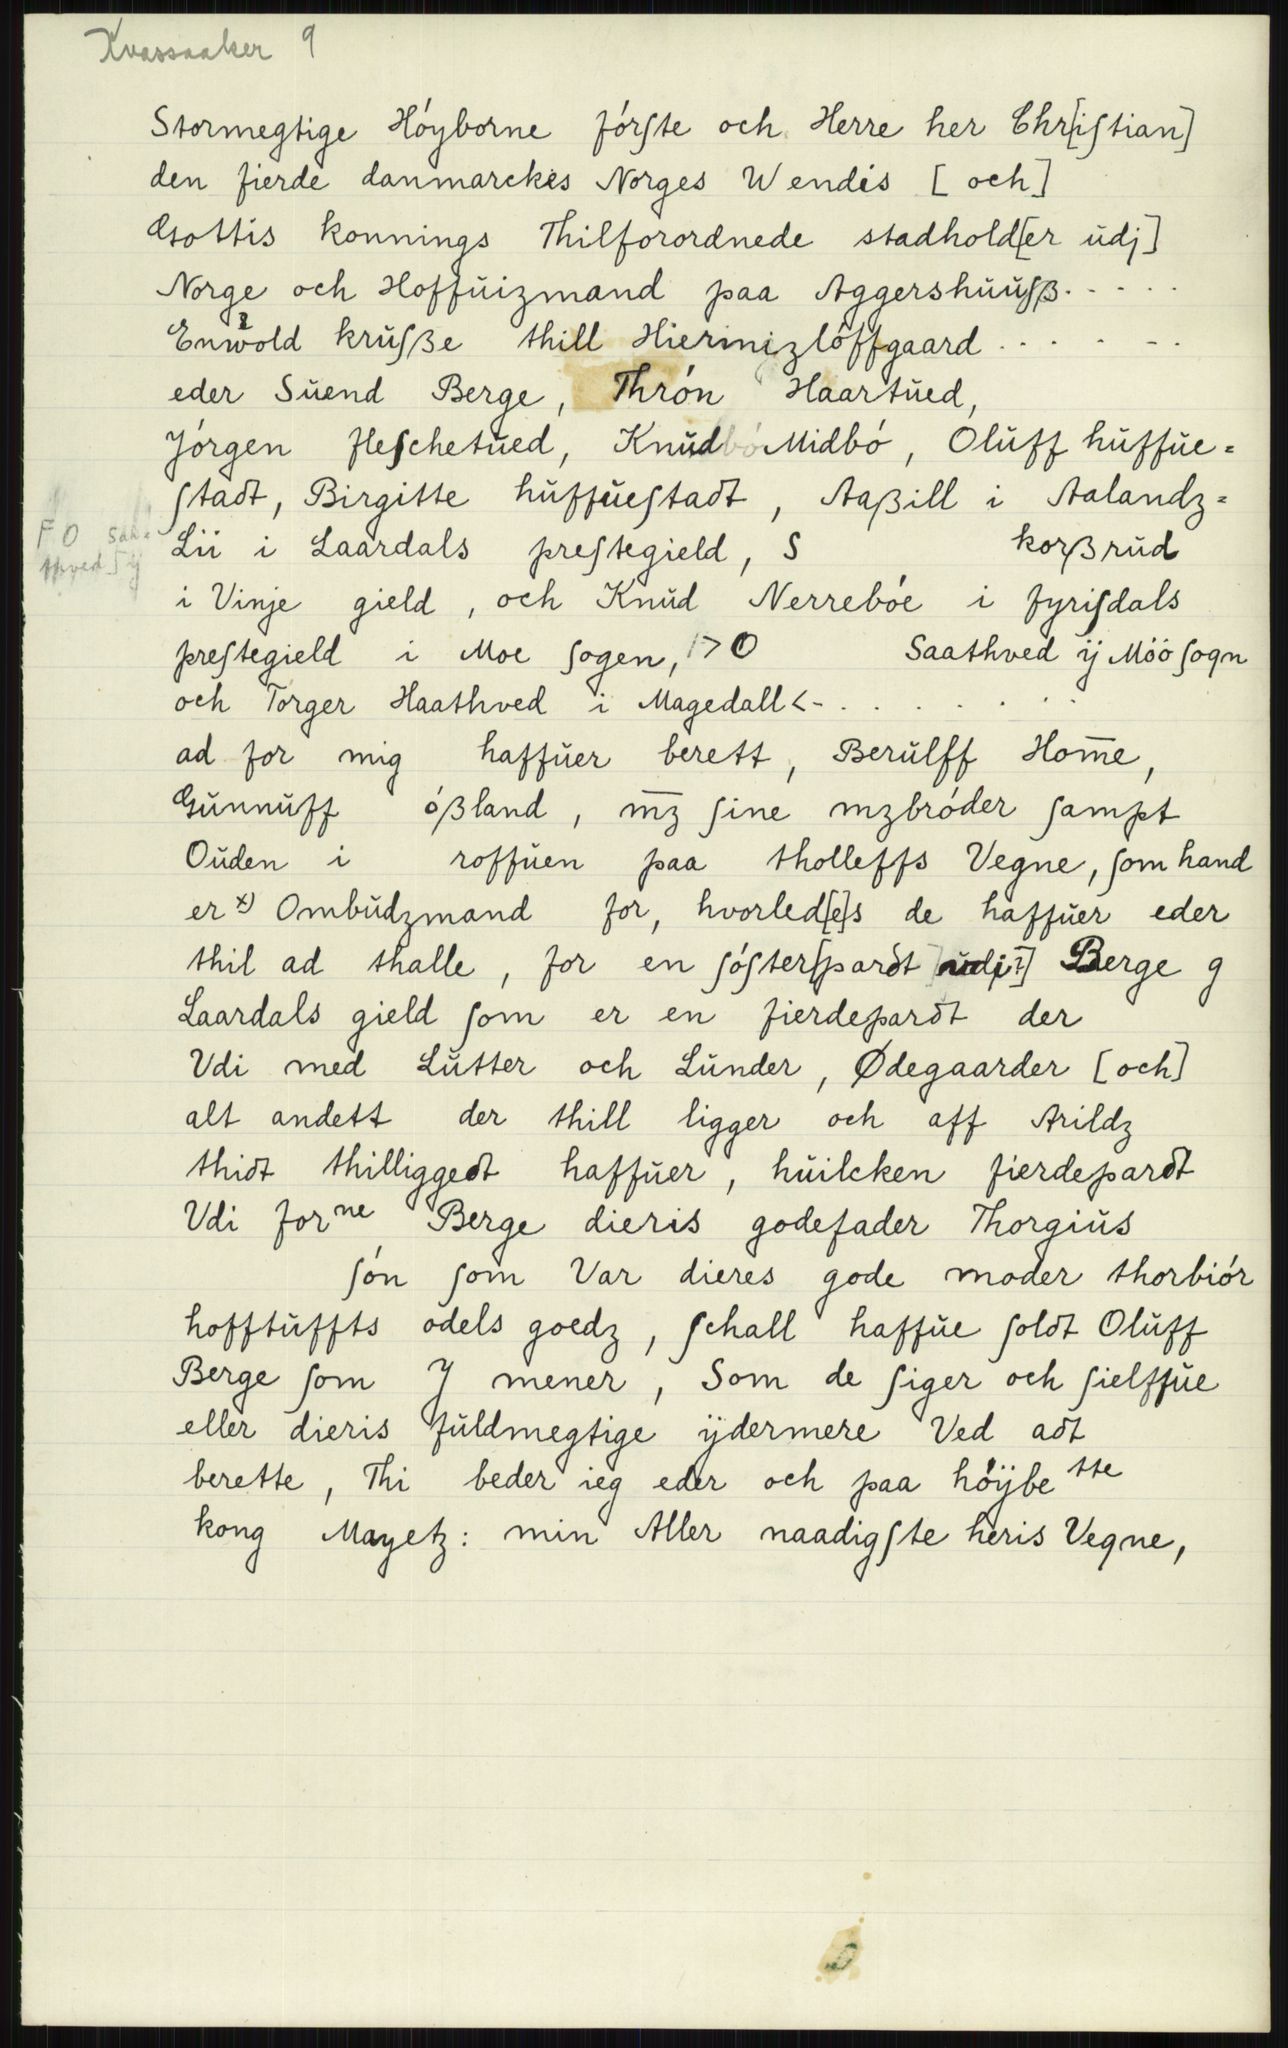 Kvassaaker 9
Stormegtige Hóyborne fórſte och Herre her Chr[iſtian]
den fierde danmarckis Norges Wendis [och]
Gottis konnings Thilforordnede stadhold[er udj]
Norge och Hoffŭizmand paa Aggershŭŭſß.....
Enwold krŭſße thill Hiermizlóffgaard......
eder Sŭend Berge, Thrón Haartŭed,
Jórgen fleſchetŭed, Knŭd Midbó, Olŭff hŭffŭe=
ſtadt, Birgitte hŭffŭeſtadt, Aaßill i Aalandz=
Lii i Laardals preſtegield, S korßrŭd
F O saa=
thved ij
i Vinje gield, och Knŭd Nerrebóe i fyriſdals
preſtegield i Moe ſogen, > O Saathved ÿ Móó ſogn
och Torger Haathved i Magedall<-.......
ad for mig haffŭer berett, Berŭlff Hom̄e,
Gŭnnŭff óßland, m̄z ſine mzbróder ſampt
Oŭden i roffŭen paa tholleffs Vegne, ſom hand
er x) Ombŭdzmand for, hvorled[e]s de haffŭer eder
thil ad thalle, for en ſóſter[pardt udj?] Berge g
Laardals gield ſom er en fierdepardt der
Vdi med Lŭtter och Lŭnder, Ødegaarder [och]
alt andett der thill ligger och aff Arildz
thidt thilliggedt haffŭer, hŭilcken fierdepardt
Vdi forne Berge dieris godefader Thorgiŭs
ſón ſom Var dieres gode moder thorbiór
hofftŭffts odels goedz, ſchall haffŭe ſoldt Olŭff
Berge ſom J mener, Som de ſiger och ſielffŭe
eller dieris fŭldmegtige ÿdermere Ved adt
berette, Thi beder ieg eder och paa hóÿbe tte
kong Mayetz: min Aller naadigſte heris Vegne,